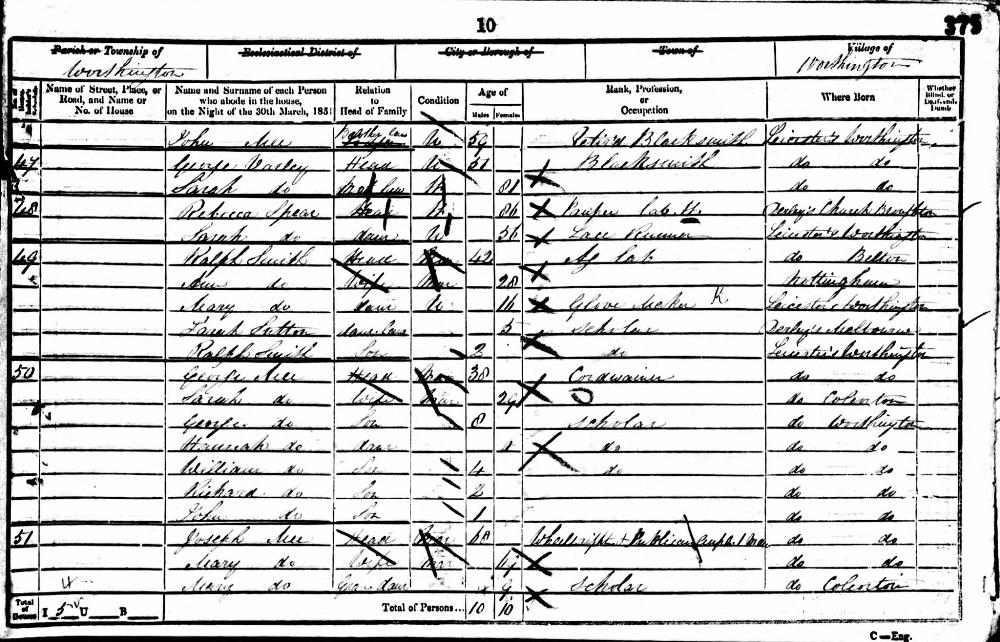 10
375
Parish or Township of Ecclesiastical District of City or Borough of Town of Village of
Worthington Worthington
Name of Street, Place, or Road, and Name or No. of House Name and Surname of each Person who abode in the house, on the Night of the 30th March, 1851 Relation to Head of Family Condition Age of Males Females Rank, Profession, or Occupation Where Born Whether Blind, or Deaf-and-Dumb
John Mee U 59 Blacksmith Leicester's Worthington
47 George Varley Head U 51 Blacksmith do do
Sarah do 81 do do
48 Rebecca Spear Head 86 Pauper Derby's Church Broughton
Sarah do daur U 36 Lace Runner Leicester's Worthington
49 Ralph Smith Head Mar 42 Ag Lab do Belton
Ann do Wife Mar 28 Nottingham
Mary do daur U 16 Glove Maker K Leicester's Worthington
Sarah Sutton 5 Scholar Derby's Melbourne
Ralph Smith Son 2 do Leicester's Worthington
50 George Mee Head Mar 38 Cordwainer do do
Sarah do Wife Mar 29 do Coleorton
George do Son 8 Scholar do Worthington
Hannah do daur do do do
William do Son 4 do do do
Richard do Son 2 do do
John do Son 1 do do
51 Joseph Mee Head Mar 68 Wheelwright + Publican do do
Mary do Wife Mar do do
Mary do Gran daur 9 Scholar do Coleorton
Total of Houses I 5 U B Total of Persons... 10 10
C—Eng.